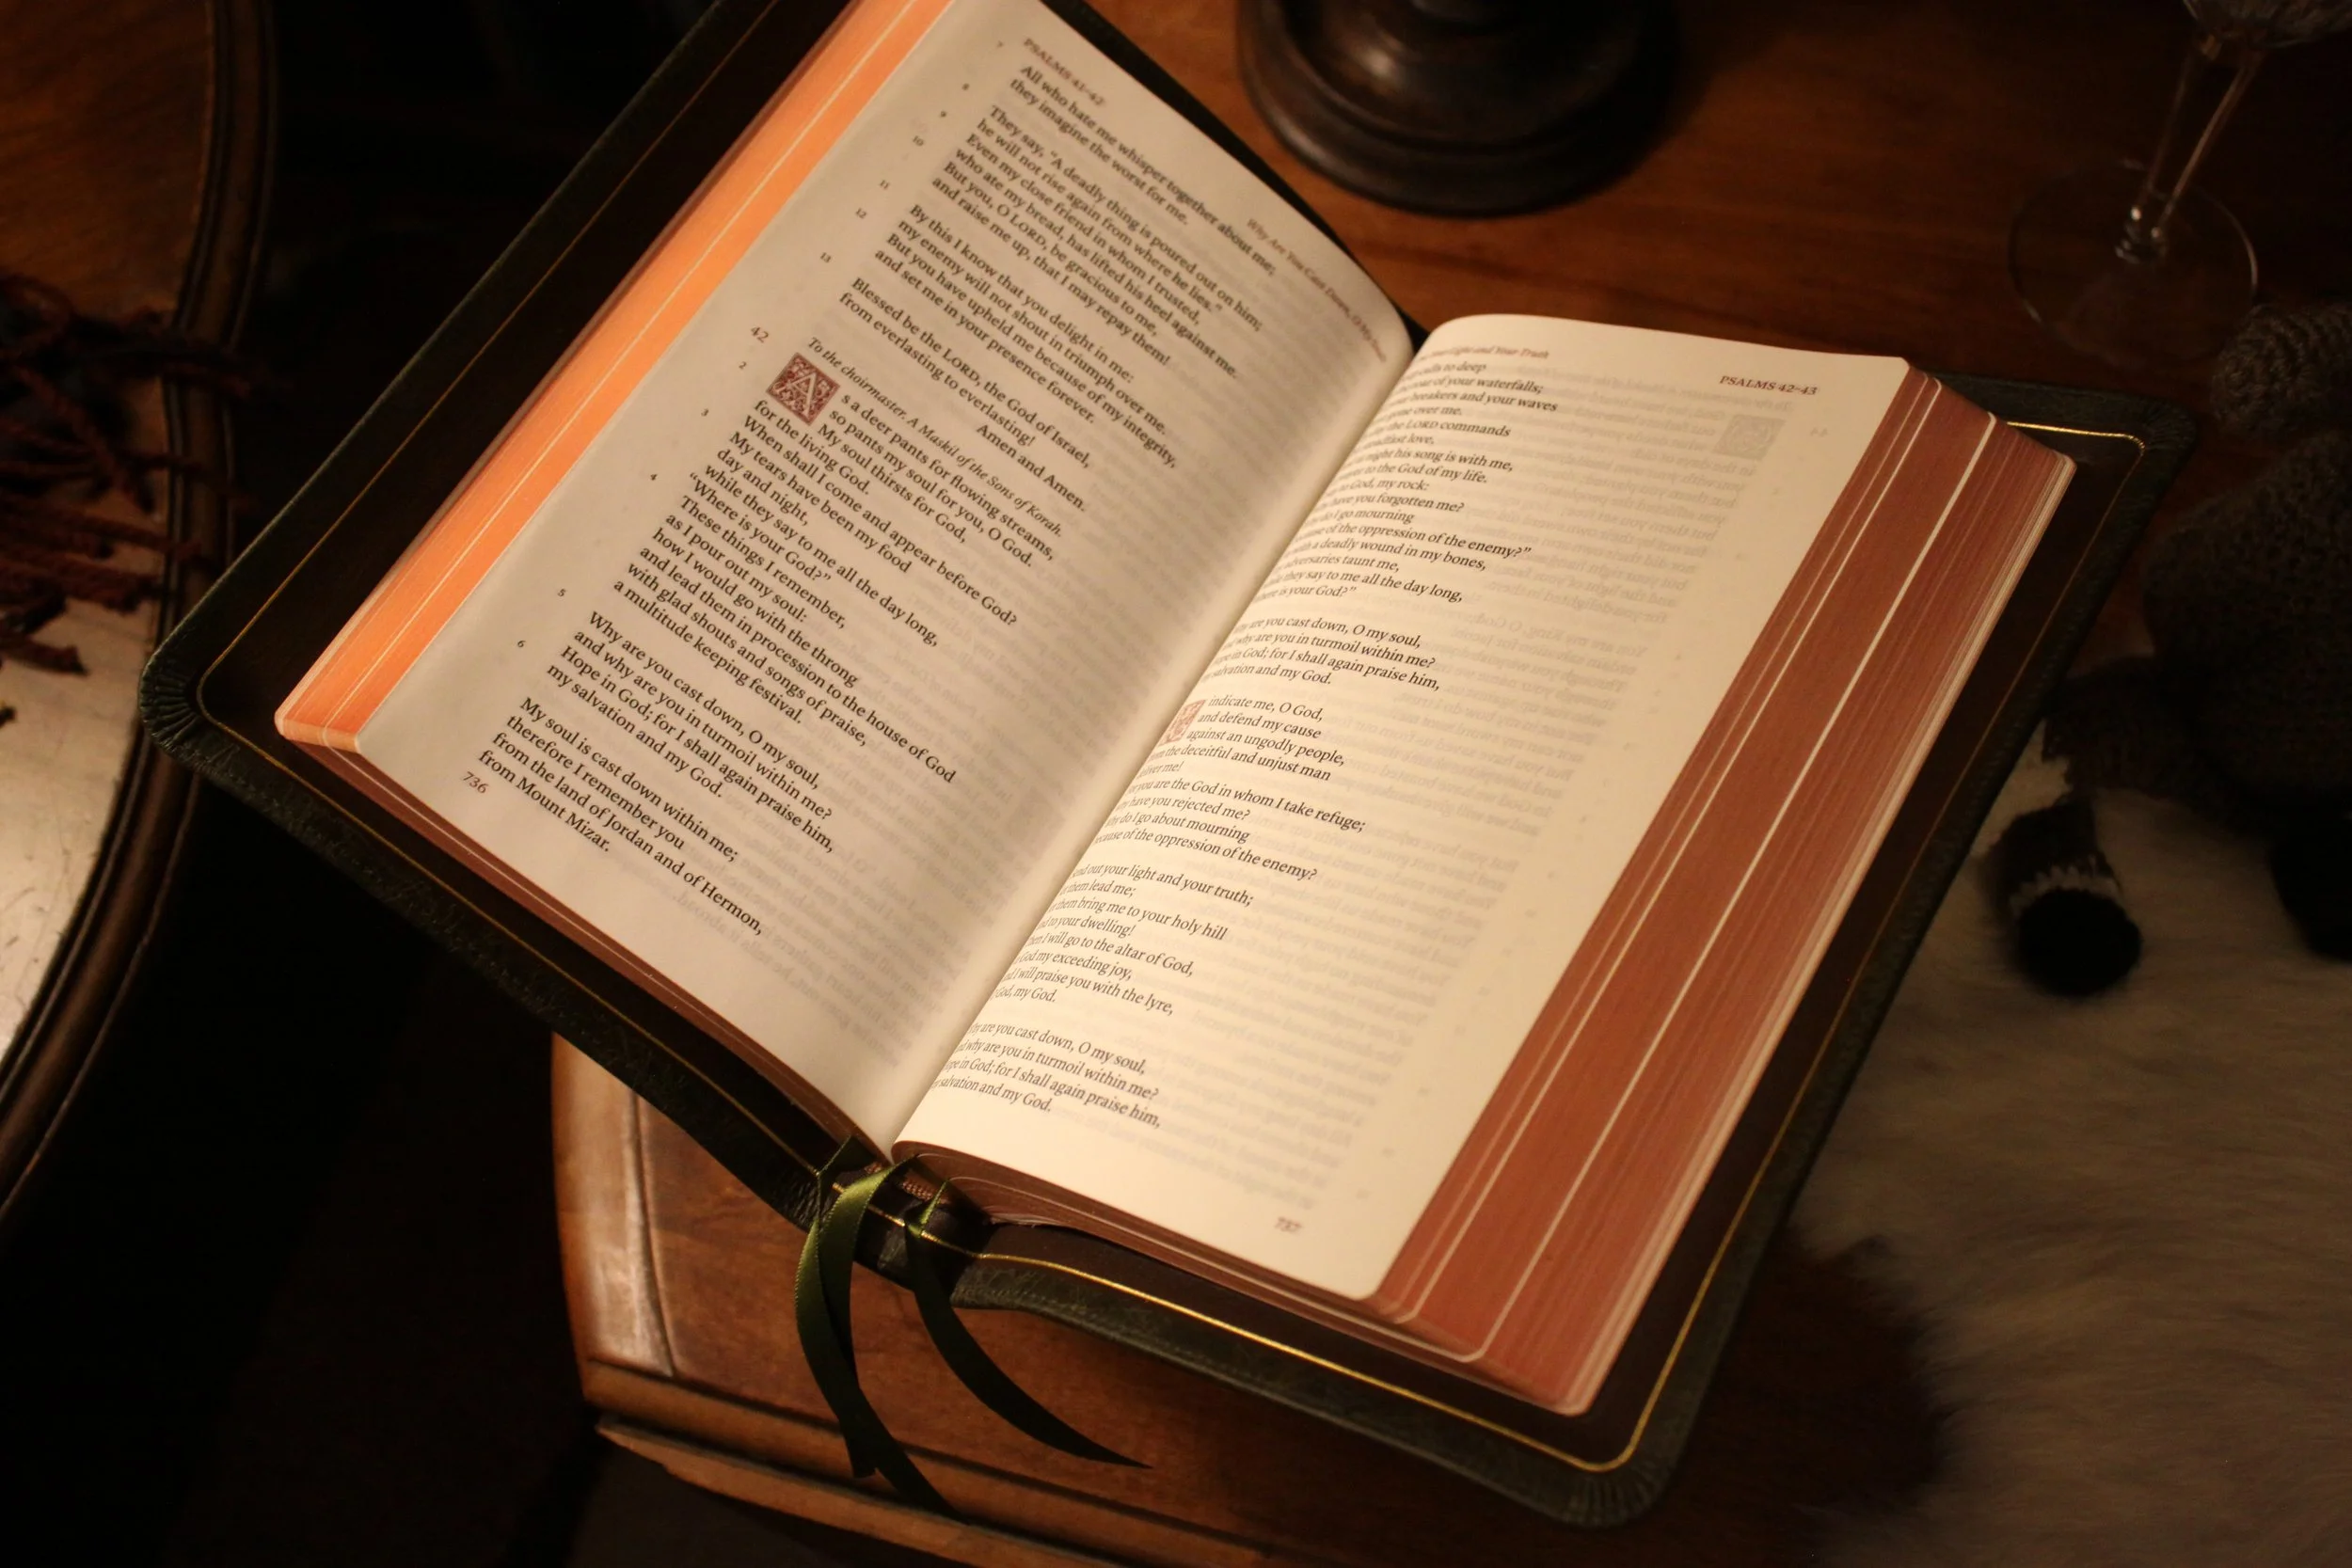 PSALMS 41–42
Why Are You Cast Down, O My Soul
7
All who hate me whisper together about me;
they imagine the worst for me.
8
They say, “A deadly thing is poured out on him;
he will not rise again from where he lies.”
9
Even my close friend in whom I trusted,
who ate my bread, has lifted his heel against me.
10
But you, O LORD, be gracious to me,
and raise me up, that I may repay them!
11
By this I know that you delight in me:
my enemy will not shout in triumph over me.
12
But you have upheld me because of my integrity,
and set me in your presence forever.
13
Blessed be the LORD, the God of Israel,
from everlasting to everlasting!
Amen and Amen.
42
To the choirmaster. A Maskil of the Sons of Korah.
As a deer pants for flowing streams,
so pants my soul for you, O God.
2
My soul thirsts for God,
for the living God.
When shall I come and appear before God?
3
My tears have been my food
day and night,
while they say to me all the day long,
“Where is your God?”
4
These things I remember,
as I pour out my soul:
how I would go with the throng
and lead them in procession to the house of God
with glad shouts and songs of praise,
a multitude keeping festival.
5
Why are you cast down, O my soul,
and why are you in turmoil within me?
Hope in God; for I shall again praise him,
my salvation and my God.
6
My soul is cast down within me;
therefore I remember you
from the land of Jordan and of Hermon,
from Mount Mizar.
736
Your Light and Your Truth
PSALMS 42–43
calls to deep
of your waterfalls;
breakers and your waves
gone over me.
the LORD commands
love,
night his song is with me,
to the God of my life.
to God, my rock:
have you forgotten me?
do I go mourning
of the oppression of the enemy?”
with a deadly wound in my bones,
adversaries taunt me,
they say to me all the day long,
is your God?”
are you cast down, O my soul,
why are you in turmoil within me?
in God; for I shall again praise him,
salvation and my God.
Vindicate me, O God,
and defend my cause
against an ungodly people,
the deceitful and unjust man
me!
you are the God in whom I take refuge;
have you rejected me?
do I go about mourning
of the oppression of the enemy?
out your light and your truth;
them lead me;
them bring me to your holy hill
to your dwelling!
I will go to the altar of God,
God my exceeding joy,
I will praise you with the lyre,
God, my God.
are you cast down, O my soul,
why are you in turmoil within me?
in God; for I shall again praise him,
salvation and my God.
737